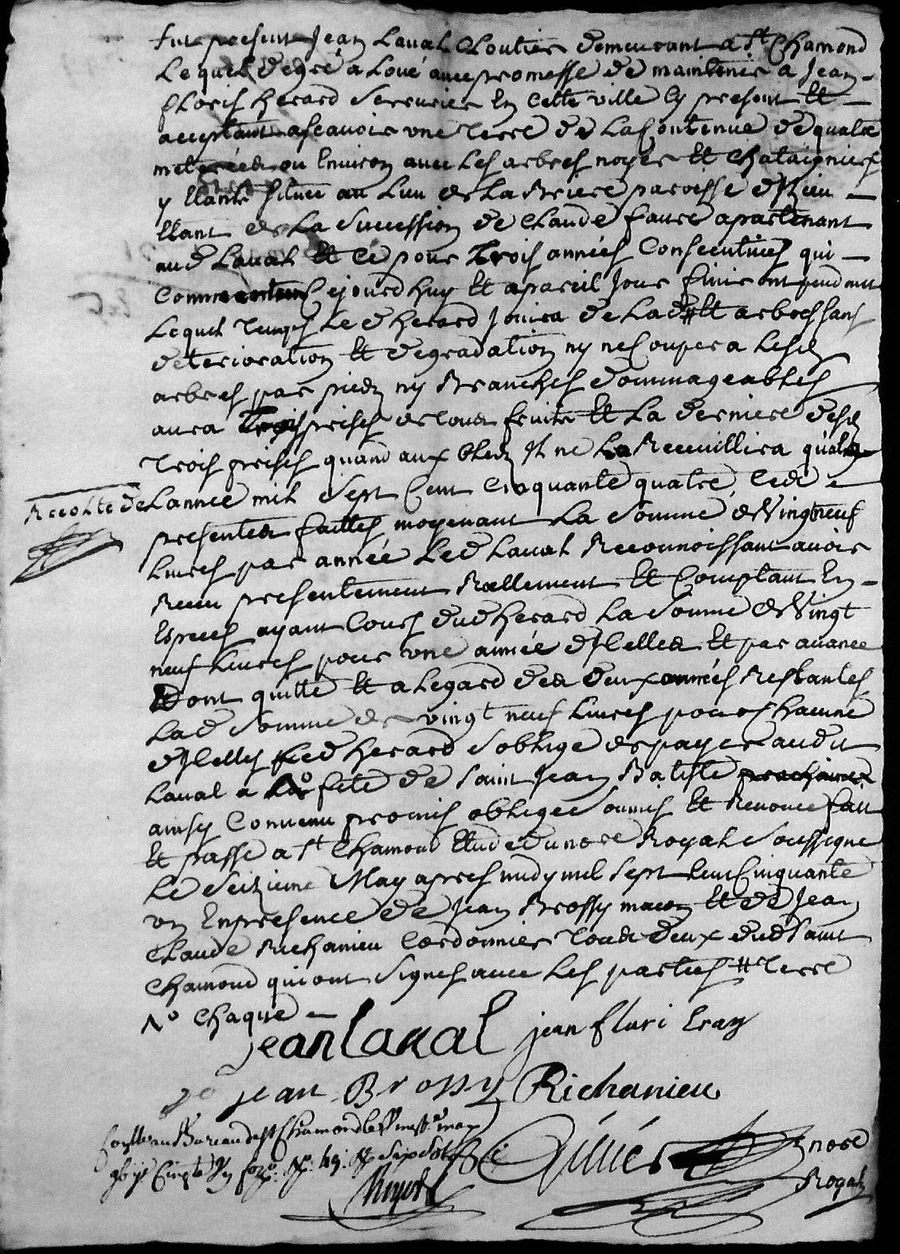 fut present Jean Laval Cloutier demeurant a St Chamond
Lequel de gré a Loué avec promesse de maintenir a Jean
floris herard Serrurier En cette ville Cy present Et
acceptant ascavoir une terre de La Contenue de quatre
meterées ou Environ avec Les arbres noyers Et Chataigniers
y Etants situee au Lieu de La paroisse
Etant de La Succession de Claude faure apartenant
aud Laval Et Ce pour trois années Consecutives qui
Commencent Cejourdhuy Et a pareil Jour finiront pendant
Lequel temps Le d herard Jouira de Lad # Et arbres sans
deterioration Et degradation ny ne Coupera Lesd
arbres par pied ny Branches dommageables
aura trois prises de tous fruits Et La derniere desd
trois prises quand aux bleds Il ne La Receuillira qu'al
Recolte de Lannee mil Sept Cent Cinquante quatre, Cede
presentes faittes moyenant La Somme de Vingt neuf
Livres par année Led Laval Reconnoissant avoir
Receu presentement Reellement Et Comptant En
Especes ayant Cours dud herard La Somme de Vingt
neuf Livres pour une année d'Icelles Et par avance
Dont quitte Et a Legard des deux années Restantes
Lad Somme de vingt neuf Livres pour Chacune
d'Icelles Led herard s'oblige de payer audit
Laval a No fete de Saint Jean Batiste prochaine
ainsy Convenu promis obligé Soumis Et Renoncé fait
Et passé a St Chamond Etude du nore Royal Soussigne
Le Seizieme May apres midy mil Sept Cent Cinquante
un En presence de Jean Brossy macon Et de Jean
Claude Richanieu Cordonnier tous deux dud Saint
Chamond qui ont Signes avec Les parties # terre
No Chaque
jean laval jean fluri Eray
jean Brossy Richanieu
au Bureau de St Chamond le may
nore
Royal